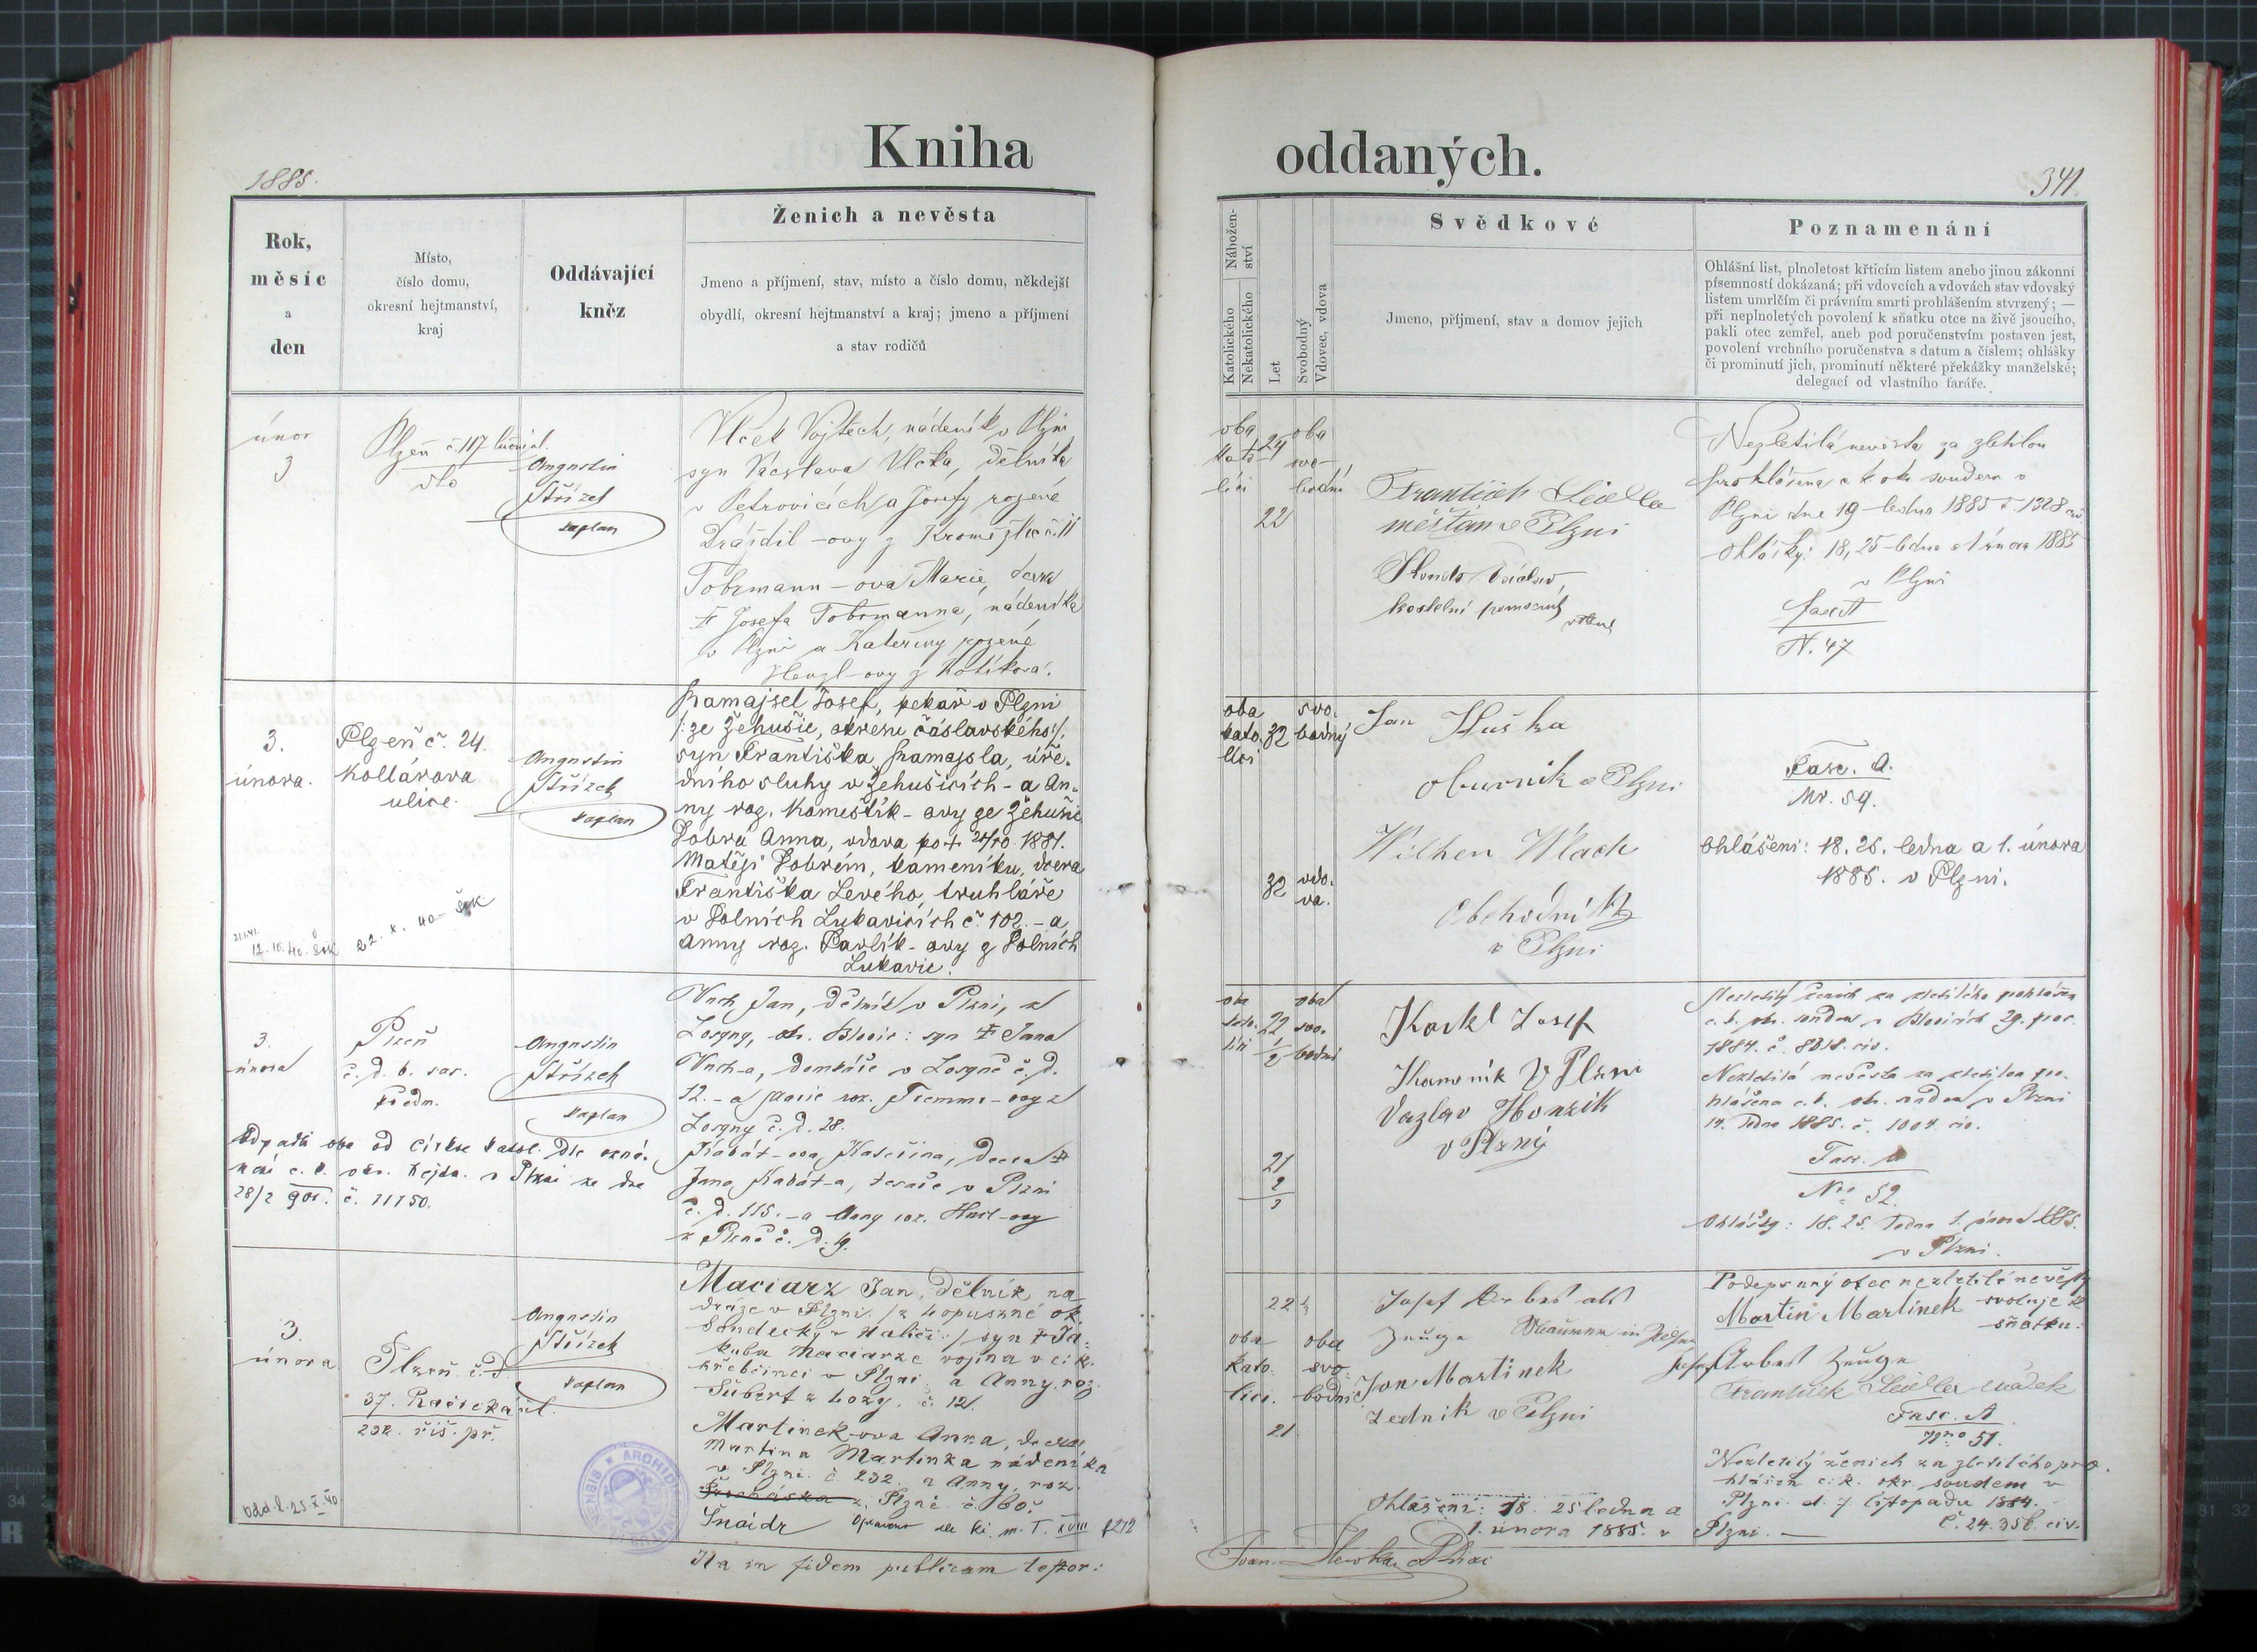 Kniha
oddaných.
1885.
341
Rok,
měsíc
a
den
Místo,
číslo domu,
okresní hejtmanství,
kraj
Oddávající
kněz
Ženich a nevěsta
Jmeno a příjmení, stav, místo a číslo domu, někdejší
obydlí, okresní hejtmanství a kraj; jmeno a příjmení
a stav rodičů
Nábožen-
ství
Katolického
Nekatolického
Let
Svobodný
Vdovec, vdova
Svědkové
Jmeno, příjmení, stav a domov jejich
Poznamenání
Ohlášní list, plnoletost křticím listem anebo jinou zákonní
písemností dokázaná; při vdovcích a vdovách stav vdovský
listem umrlčím či právním smrti prohlášením stvrzený; —
při neplnoletých povolení k sňatku otce na živě jsoucího,
pakli otec zemřel, aneb pod poručenstvím postaven jest,
povolení vrchního poručenstva s datum a číslem; ohlášky
či prominutí jich, prominutí některé překážky manželské;
delegací od vlastního faráře.
únor
3
Plzeň č. 117
Augustin
Střízek
kaplan
Vlček Vojtěch, nádeník v Plzni
syn Václava Vlčka, dělníka
v Petrovicích a Josefy rozené
Dráždil-ovy z
Tobrmann-ova Marie, dcera
Josefa Tobrmanna, nádeníka
v Plzni a Kateřiny rozené
Henzl-ovy z
oba
kato-
líci
24
22
oba
svo-
bodni
František Seidler
měšťan v Plzni
kostelní pomocník
Nezletilá nevěsta za zletilou
prohlášena c. k. okr. soudem v
Plzni dne 19 ledna 1885 č. 1328 civ.
Ohlášky: 18, 25 ledna a 1 února 1885
v Plzni
Fasc. A
N. 47
3.
února.
Plzeň č. 24.
Kollárova
ulice.
Augustin
Střízek
kaplan
Hamajsel Josef, pekař v Plzni
/: ze Žehušic, okresu čáslavského :/.
syn Františka Hamajsla, úře-
dního sluhy v Žehušicích - a An-
ny roz. Komeštík-ovy ze Žehušic
Dobrá Anna, vdova po + 24/10 1881.
Matěji Dobrém, kameníku, dcera
Františka Levého, truhláře
v Dolních Lukavicích č. 102. - a
Anny roz. Pavlík-ovy z Dolních
Lukavic.
12. 10. 40.
22. X. 40
oba
kato-
líci
32
svo-
bodný
32
vdo-
va.
Jan Huška
obuvník v Plzni
Vilhem Wlach
Obchodník
v Plzni
Fasc. A.
Nr. 59.
Ohlášeni: 18. 25. ledna a 1. února
1885. v Plzni.
3.
února
Plzeň
č. d. 6. sas.
předm.
Augustin
Střízek
kaplan
Vuch Jan, dělník v Plzni, z
Losyny, okr. Blovic: syn Jana
Vuch-a, domkáře v Losyně č. d.
12. - a Marie roz. Tremml-ovy z
Losyny č. d. 28.
Kabát-ova Kateřina, dcera
Jana Kabát-a, tesaře v Plzni
č. d. 115. - a Anny roz.
z Plzně č. d. 19.
Odpadli oba od církve katol. dle ozná-
mení c. k. okr. hejtm. v Plzni ze dne
28/2 901. č. 11150.
oba
kato-
líci
22
1/2
oba
svo-
bodni
21
Karkl Josef
Kamenik V Plzni
Vazlav Honzik
v Plzný
Nezletilý ženich za zletilého prohlášen
c. k. okr. soudem v Blovicích 29. pros.
1884. č.
Nezletilá nevěsta za zletilou pro-
hlášena c. k. okr. soudem v Plzni
ledna 1885. č. 1004 civ.
Fasc. A
Nro 52.
Ohlášky: 18. 25. ledna 1. února 1885.
v Plzni.
3.
února
Plzeň č. d.
37.
232. říš. př.
Augustin
Střízek
kaplan
Maciarz Jan, dělník na
dráze v Plzni /: z Lopuszné ok.
Sandecký v Haliči :/ syn Ja-
kuba Maciarze vojína v c. k.
hřebčinci v Plzni a Anny, roz.
Šubert z Lozy, č. 12.
Martinek-ova Anna, dcera
Martina Martinka nádeníka
v Plzni č. 232. a Anny, roz.
z Plzně č. 60.
Šnaidr
odd. l. 25. X. 40
oba
kato-
líci.
22
21
oba
svo-
bodni
Josef Arbes als
Zeuge
Jan Martinek
zedník v Plzni
Ohlášeni: 18. 25 ledna a
1. února 1885. v Plzni. —
Podepsaný otec nezletilé nevěsty
Martin Martinek svoluje k
sňatku:
Josef Arbes Zeuge
František Seidler svědek
Fasc. A
Nro 51.
Nezletilý ženich za zletilého pro-
hlášen c. k. okr. soudem v
Plzni d. 7 listopadu 1884. -
č. 24.356. civ.
Ita in fidem publicam testor: